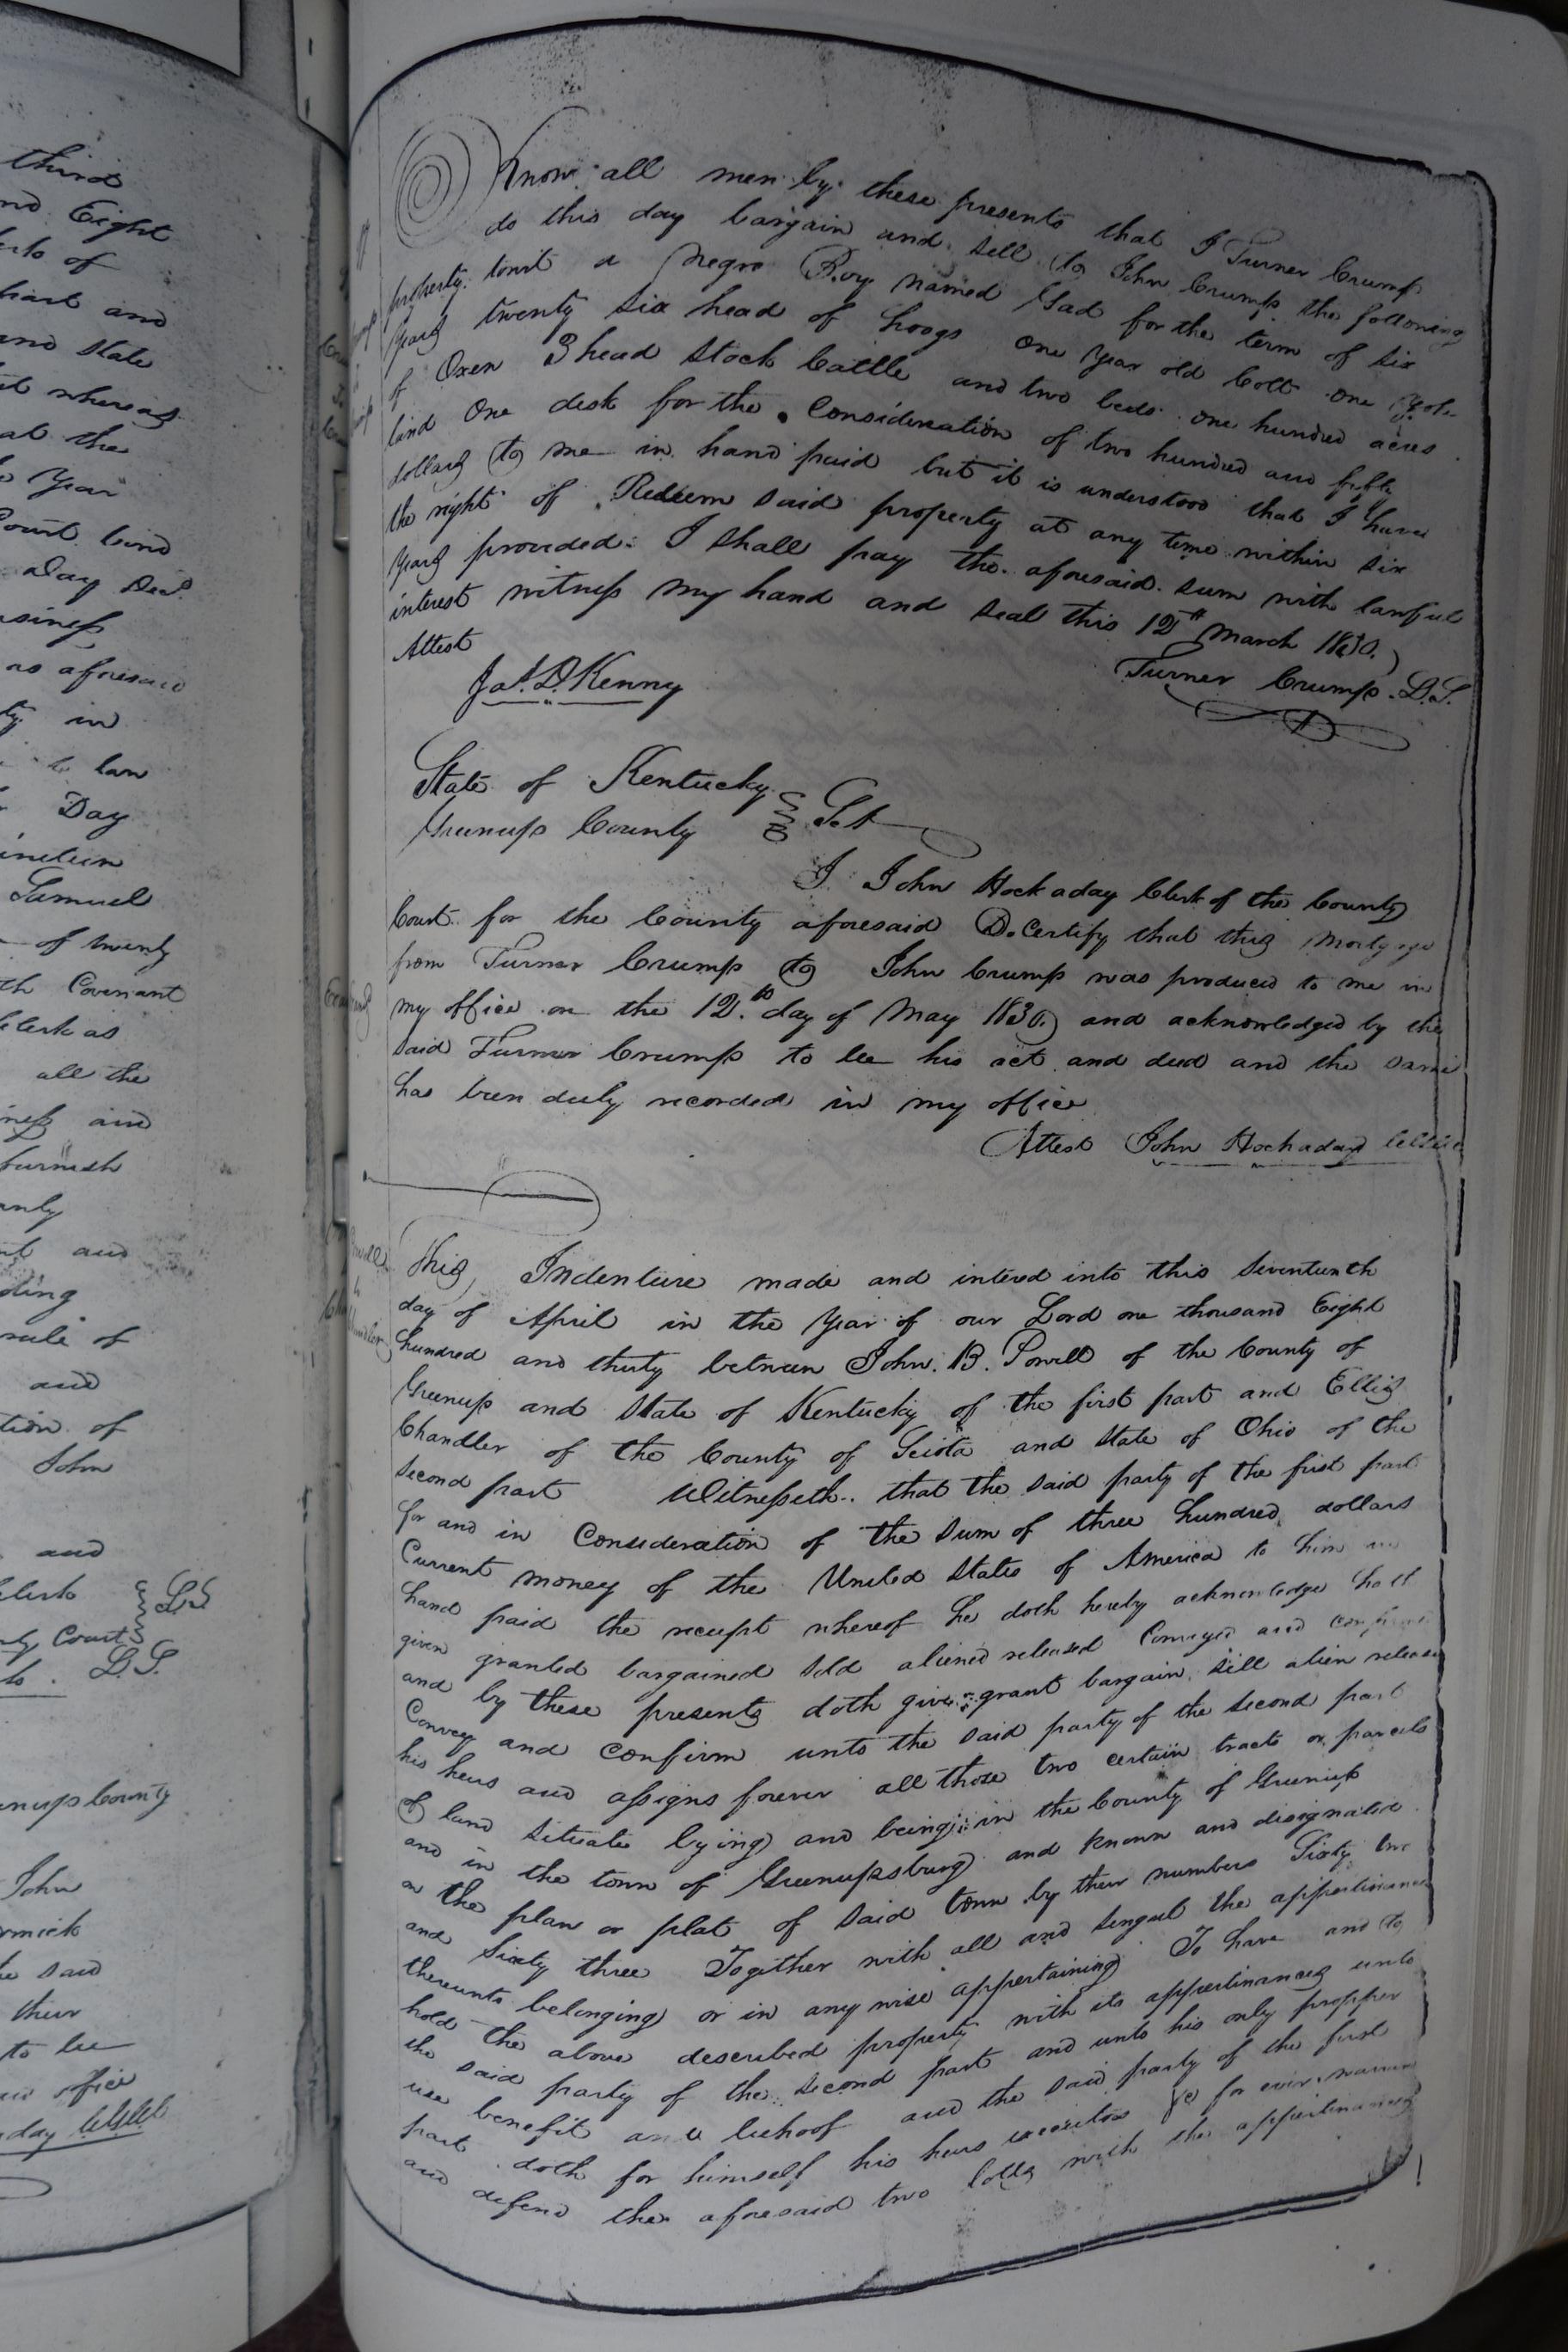 third
nd Eight
of
hart and
and State
whereas
at the
Year
Court bind
Day Decr
siness
as aforesaid
ty in
law
Day
ineteen
Samuel
of twenty
th Covenant
Clerk as
all the
ness and
furnish
and
ding
rule of
and
tion of
John
and
Clerk
ly Court
L.S.
enups County
John
rmick
he said
their
to be
office
day
Know all men by these presents that I Turner Crump
do this day bargain and sell to John Crump the following
property towit a Negro Boy named Gad for the term of six
years twenty six head of hoogs one year old Colt one yoke
of Oxen 3 head Stock Cattle and two beds one hundred acres
land One desk for the Consideration of two hundred and fifty
dollars to me in hand paid but it is understood that I have
the right of Redeem said property at any time within six
years provided I shall pay the aforesaid sum with lawful
interest witness my hand and seal this 12th March 1830.
Attest
Jas. D. Kenny
Turner Crump L.S.
State of Kentucky
Greenups County Sct
I John Hockaday Clerk of the County
Court for the County aforesaid Do Certify that this Mortgage
from Turner Crump to John Crump was produced to me in
my office on the 12th day of May 1830 and acknowledged by the
said Turner Crump to be his act and deed and the same
has been duly recorded in my office
Attest John Hockaday
Powell
to
Chandler
This Indenture made and intered into this seventeenth
day of April in the Year of our Lord one thousand Eight
hundred and thirty between John. B. Powell of the County of
Greenups and State of Kentucky of the first part and Ellis
Chandler of the County of Sciota and State of Ohio of the
second part Witnesseth that the said party of the first part
for and in Consideration of the Sum of three hundred dollars
Current money of the United States of America to him in
hand paid the receipt whereof he doth hereby acknowledge hath
given granted bargained sold aliened released Conveyed and confirmed
and by these presents doth give grant bargain sell alien release
Convey and Confirm unto the said party of the second part
his heirs and assigns forever all those two certain tracts or parcels
of land situate lying and being in the County of Greenups
and in the town of Greenupsburg and known and disignated
on the plan or plat of said town by their numbers Sixty two
and Sixty three Together with all and singuel the appertinances
thereunto belonging or in any wise appertaining To have and to
hold the above described property with its appertinances unto
the said party of the second part and unto his only propper
use benefit and behoof and the said party of the first
part doth for himself his heirs executors &c for ever warrant
and defend the aforesaid two lotts with the appertinances